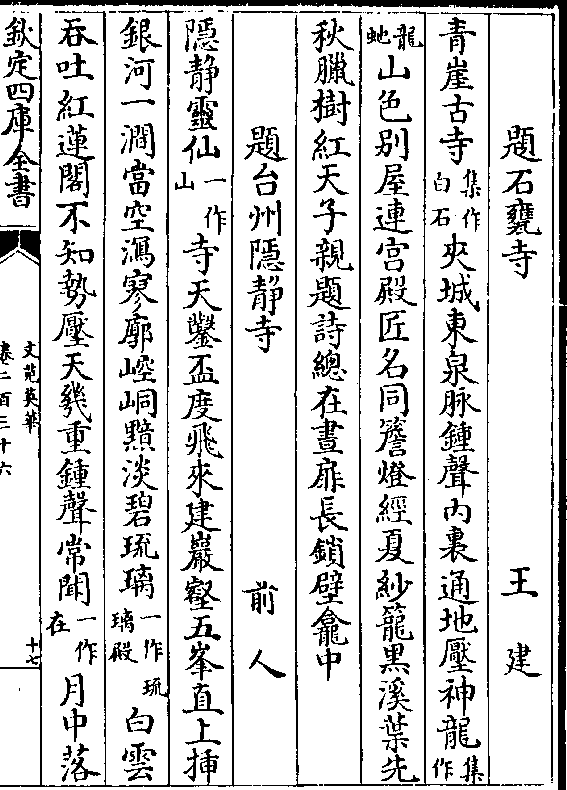 題石甕寺 王建
青崖古寺集作白石夾城東泉脉鍾聲内裏通地壓神龍集作
龍虵山色别屋連宫殿匠名同簷燈經夏紗籠黒溪葉先
秋臘樹紅天子親題詩總在畫扉長鎖壁龕中
題台州隱静寺 前人
隱静靈仙一作山寺天鑿盃度飛來建巖壑五峯直上揷
銀河一澗當空瀉寥廓崆峒黯淡碧琉璃一作琉璃殿白雲
吞吐紅蓮閣不知勢壓天幾重鍾聲常聞一作在月中落
欽定四庫全書
文苑英華
卷二百三十六
十七